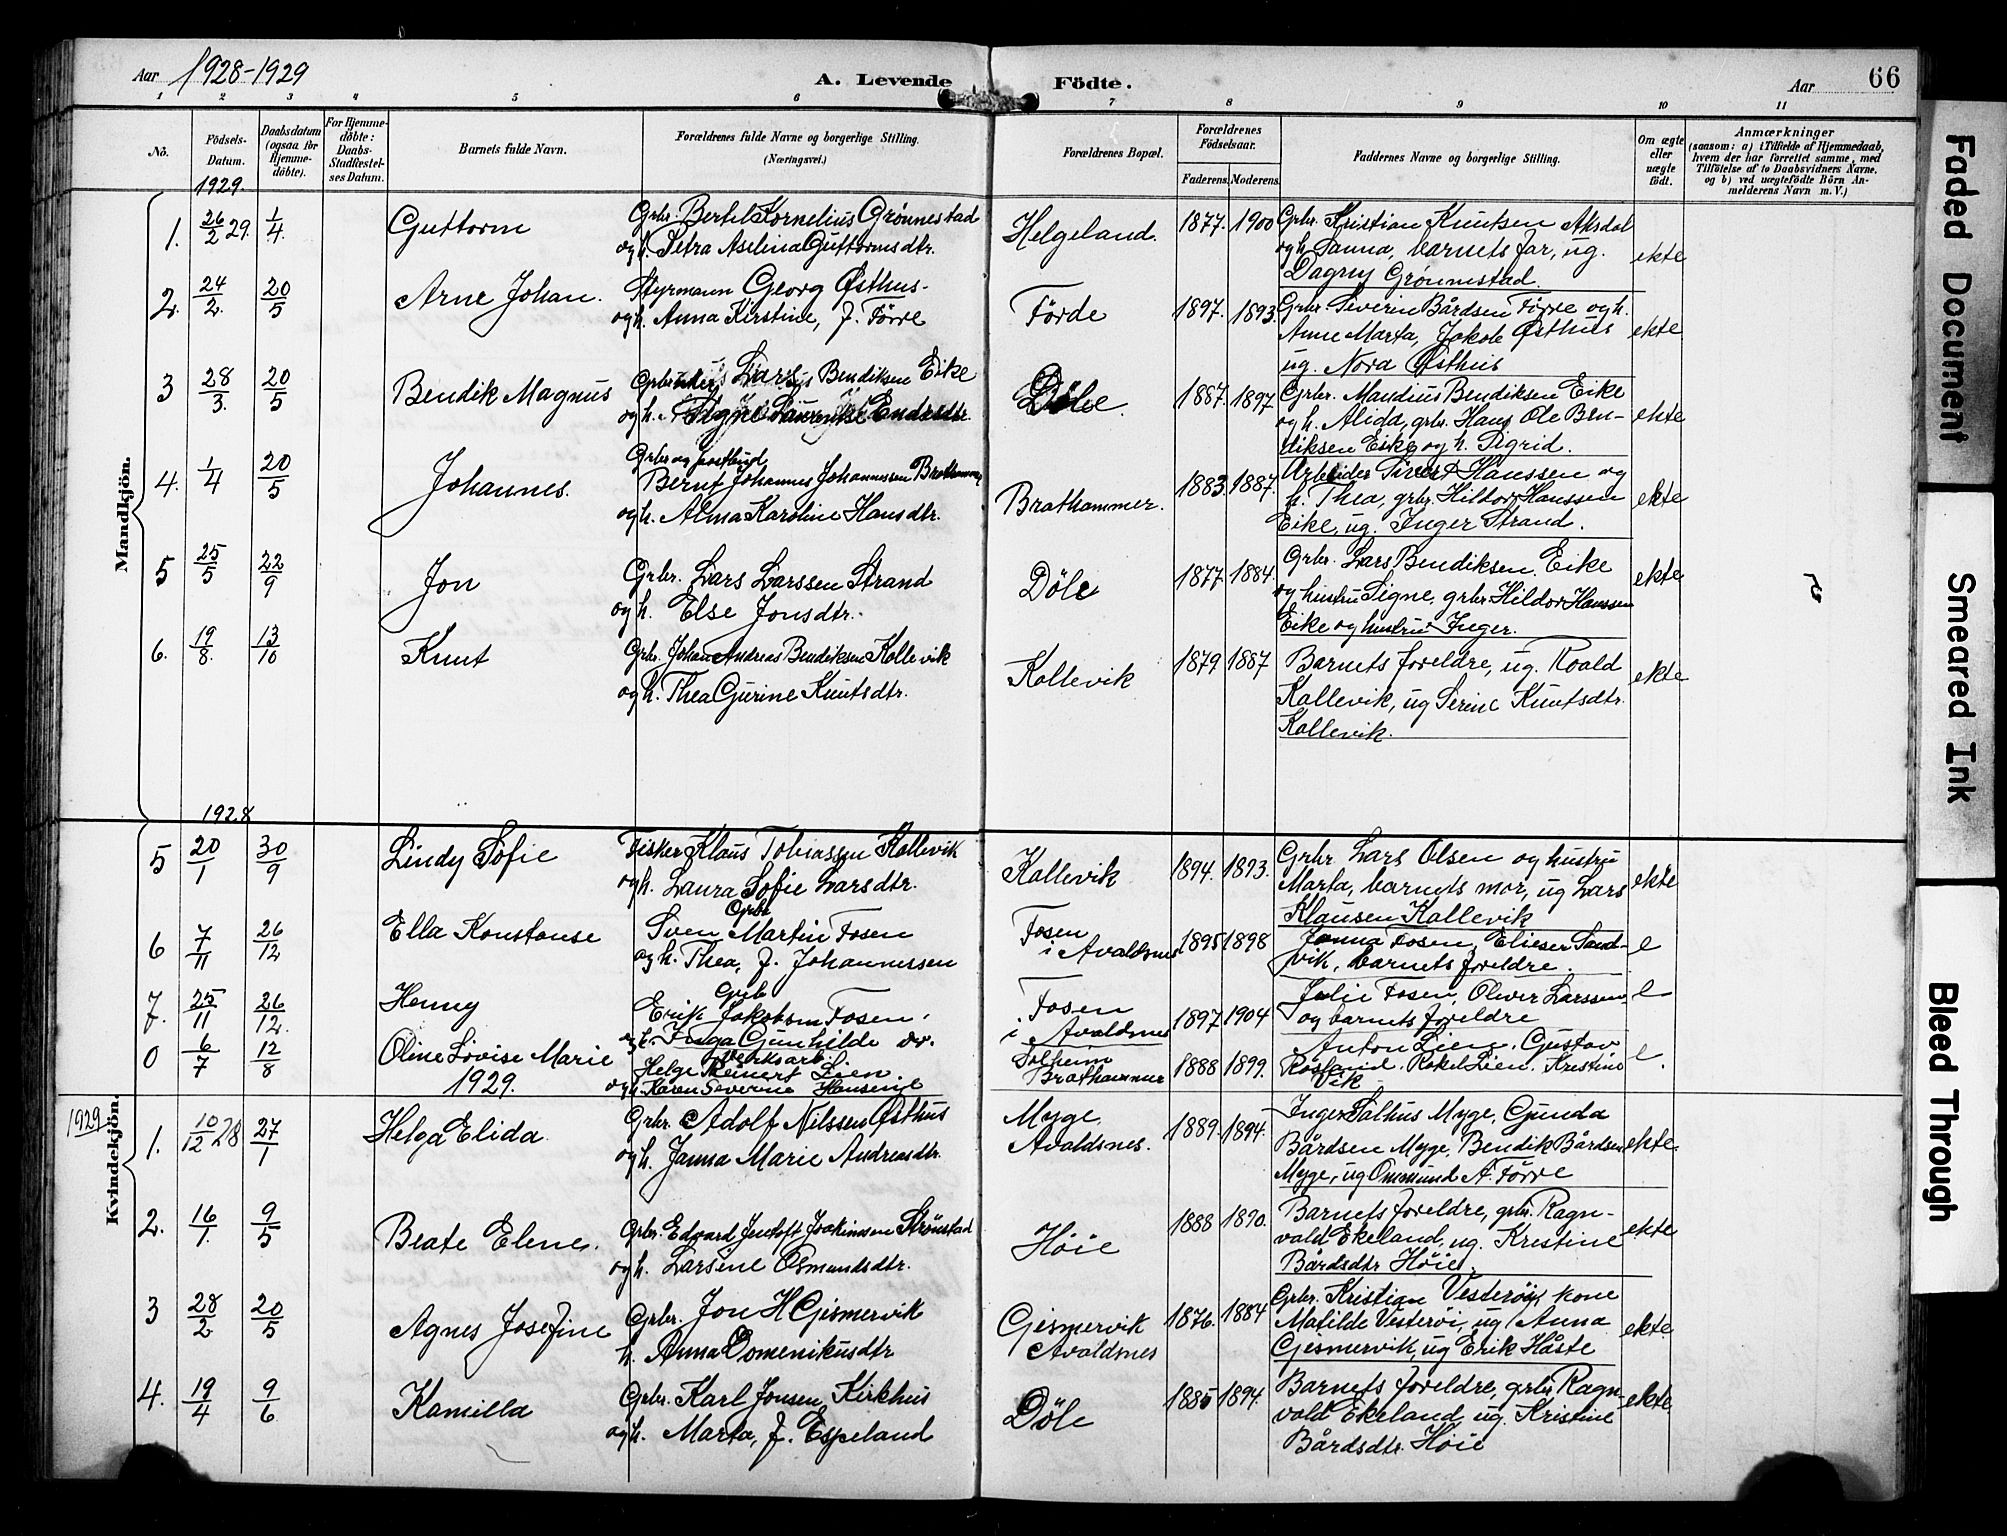 Aar 1928-1929 A. Levende Födte. Aar 66
1 2 3 4 5 6 7 8 9 10 11
No. Födsels-Datum. Daabsdatum (ogsaa for Hjemme-döbte). For Hjemme-döbte: Daabs-Stadfæstel-ses Datum. Barnets fulde Navn. Forældrenes fulde Navne og borgerlige Stilling. (Næringsvei.) Forældrenes Bopæl. Forældrenes Födselsaar. Faderens. Moderens. Faddernes Navne og borgerlige Stilling. Om ægte eller uægte födt. Anmærkninger (saasom: a) i Tilfælde af Hjemmedaab, hvem der har forrettet samme, med Tilföielse af to Daabsvidners Navne, og b) ved uægtefödte Börn An-melderens Navn m. V.)
Mandkjön.
1929.
1. 26/2 29. 1/4. Guttorm Grbr. Bertel Kornelius Grönnestad Helgeland. 1877. 1900 Grbr. Kristian Knutsen Aksdal
og h. Petra Aselina Guttormsdtr. og h. Sanna, barnets far, ug. ekte
Dagny Grönnestad.
2. 24/2. 20/5 Arne Johan. Styrmann Georg Østhus- Förde 1897. 1893. Grbr. Severin Bårdsen Förre og h.
og h. Anna Kirstine, f. Förre Anne Marta, Jakob Østhus ekte
ug. Nora Østhus
3 28/3. 20/5 Bendik Magnus Lars Bendiksen Eike Döle. 1887. 1897 Grbr. Mandius Bendiksen Eike
og h. Signe Endresdtr. og h. Alida, grbr. Hans Ole Ben- ekte
diksen Eike og h. Sigrid.
4. 1/4 20/5 Johannes. Grbr og postbud
Bernt Johannes Johannessen Brathammer Brathammer. 1883. 1887. Arbeider Sivert Hanssen og
og h. Alma Karoline Hansdtr. h. Thea, grbr. Hildor Hanssen ekte
Eike, ug. Inger Strand.
5 25/5 22/9 Jon Grbr. Lars Larssen Strand Döle 1877. 1884. Grbr. Lars Bendiksen Eike ekte
og h. Else Jonsdtr. og hustru Signe, grbr Hildor Hanssen
Eike og hustru Inger.
6. 19/8. 13/10 Knut Grbr. Johan Andreas Bendiksen Kallevik Kallevik 1879 1887 Barnets foreldre, ug. Roald
og h. Thea Gurine Knutsdtr. Kallevik, ug Serine Knutsdtr. ekte
Kallevik.
Kvindekjön.
1928
5 20/1 30/9 Lindy Sofie Fisker Klaus Tobiassen Kallevik Kallevik 1894. 1893. Grbr Lars Olsen og hustru
og h. Laura Sofie Larsdtr. Marta, barnets mor, ug Lars ekte
Klausen Kallevik
6 7/11 26/12 Ella Konstanse Grbr
Sven Martin Fosen Fosen i Avaldsnes 1895 1898 Janna Fosen, Elieser Sand- e
og h. Thea, f. Johannessen vik, barnets foreldre.
7. 25/11 26/12. Henny Grb
Erik Jakobsen Fosen, Fosen i Avaldsnes 1897 1904 Julie Fosen, Oliver Larssen, e
og h. Inga Gunhilde og barnets foreldre
0 6/7 12/8 Oline Lovise Marie Verksarb
Helge Reinert Lien Solheim Brathammer 1888 1899. Anton Lien, Gustav
og h. Karen Severine Rakel Lien. Kristine Vik e.
1929.
1929
1. 10/12 28 27/1 Helga Elida. Grbr. Adolf Nilssen Østhus Myge, Avaldsnes. 1889. 1894. Inger Salhus Myge, Gunda
og h. Janna Marie Andreasdtr. Bårdsen Myge, Bendik Bårdsen ekte.
Myge, ug Ommund A. Förre
2. 16/1. 9/5 Beate Elene. Grbr. Edvard Jentoft Joakimsen Strönstad Höie 1888 1890. Barnets foreldre, grbr. Ragn-
og h. Larsine Osmundsdtr. vald Ekeland, ug. Kristine ekte
Bårdsdtr Höie.
3 28/2 20/5 Agnes Josefine Grbr. Jon H Gismervik Gismervik Avaldsnes 1876. 1884 Grbr. Kristian Vesteröi, kone
h. Anna Domenikusdtr Matilde Vesteröi, ug Anna ekte
Gismervik, ug Erik Håste
4. 19/4 9/6 Kamilla Grbr. Karl Jonsen Kirkhus Döle 1885 1894. Barnets foreldre, grbr Ragn-
og h. Marta, f. Espeland vald Ekeland ug. Kristine ekte.
Bårdsdtr. Höie
Faded Document
Smeared Ink
Bleed Through